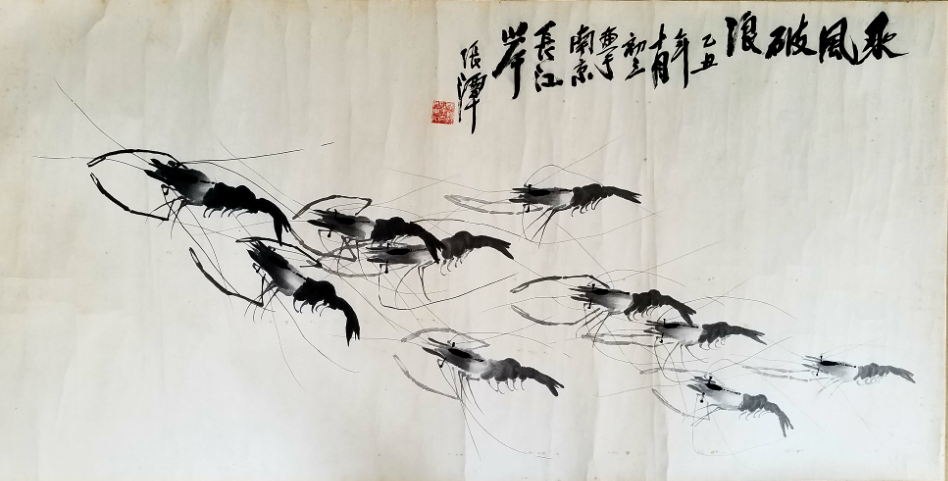 乘風破浪
乙丑
年
十月
初三
畫于
南京
長江
岸
張潭